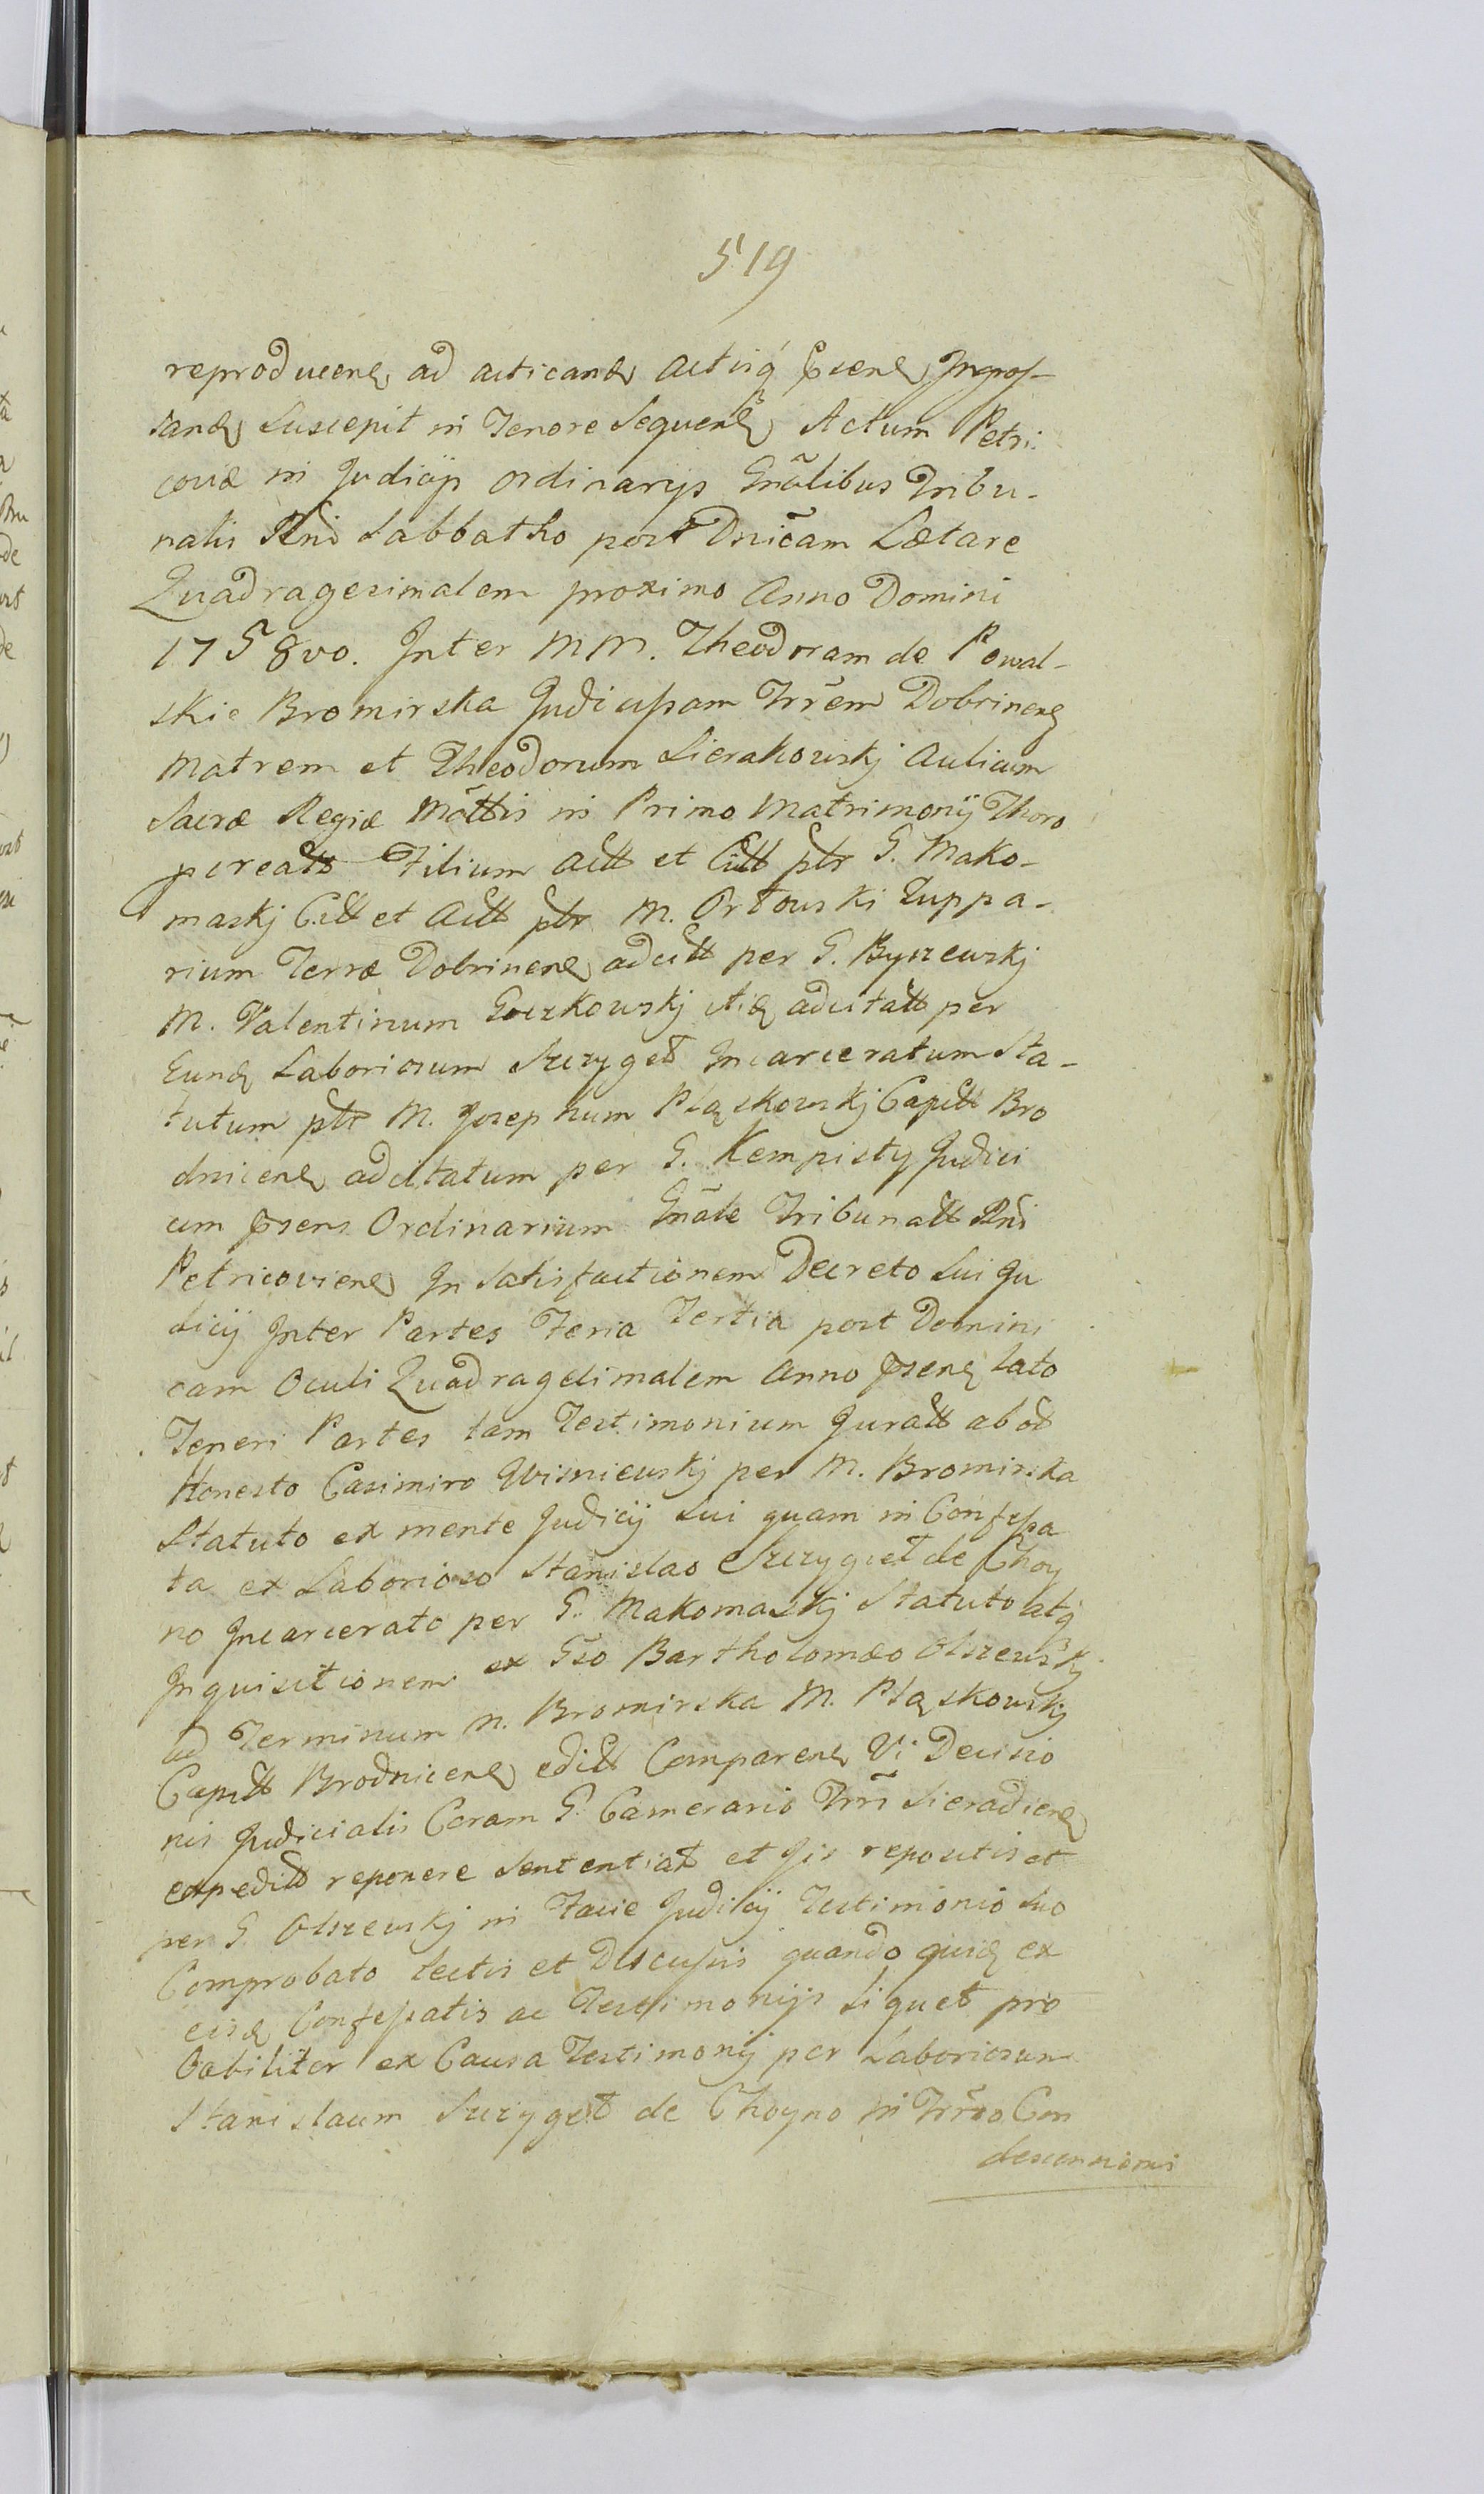 519
reproducenđ ad acticanđ Actisq́ pñsenđ Ingros-
sanđ Suscepit in Tenore Sequenđ Actum Petri-
coviæ in Judicijs Ordinarijs Gnãlibus Tribu-
nalis Rñi Sabbatho post Dnicam Lætare
Quadragesimalem proximo Anno Domini
1758vo. Inter MM. Theodoram de Powal-
skie Bromirska Judicissam Trrem Dobrinenđ
Matrem et Theodorum Sierakowskj Aulicum
Sacræ Regiæ Mãttis in Primo Matrimonij Thoro
pcreatt Filium Actt et Citt ptr G. Mako-
maskj Citt et Actt ptr M. Orłowski Zuppa-
rium Terræ Dobrinenđ adcitt per G. Byszewskj
M. Valentinum adcitatt per
Eunđ Laboriosum Szczygeł Incarceratum Sta-
tutum ptr M. Josephum Pląskowskj Capitt Bro
dnicenđ adcitatum per G. Kempisty Judici
um pñsens Ordinarium Gnãle Tribunatt Rñi
Petricovienđ In Satisfactionem Decreto Sui Ju
dicij Inter Partes Feria Tertia post Domini
cam Oculi Quadragesimalem Anno pñsenđ Lato
Teneri Partes tam Testimonium Juratt ab
Honesto Casimiro Wisniewskj per M. Bromirska
Statuto ex mente Judicij Sui quam in Confessa
ta ex Laborioso Stanislao Szczygieł de Choy
no Incarcerato per G. Makomaskj Statuto atq́
Inquisitionem ex Gso Bartholomæo Olszewskj
ad Terminum M. Bromirska M. Pląskowskj
Capitt Brodnicenđ editt Comparenđ Vi Decisio
nis Judicialis Coram G. Camerario Trri Sieradienđ
expeditt reponere Sententiatt et Jis repositis et
per G. Olszewskj in Facie Judicij Testimonio suo
Comprobato lectis et Discussis quando quiđ ex
eisđ Confessatis ac Testimonijs Liquet pro
babiliter ex Causa Testimonij per Laboriosum
Stanislaum Szczygieł de Choyno in Con
descensioni